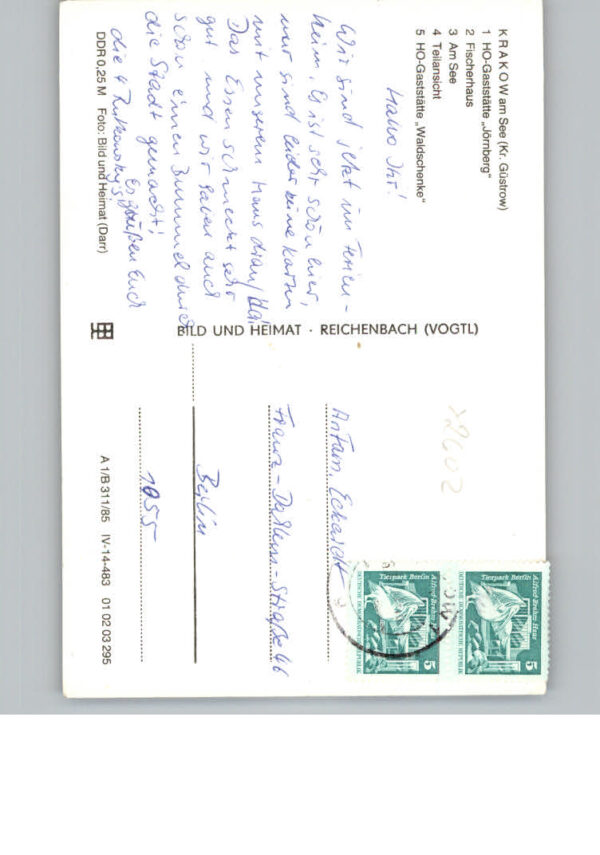 KRAKOW am See (Kr. Güstrow)
1 HO-Gaststätte „Jörnberg"
2 Fischerhaus
3 Am See
4 Teilansicht
5 HO-Gaststätte „Waldschenke"
Hallo Ihr!
Wir sind jetzt im Ferien-
heim. Es ist sehr schön hier,
nur sind leider keine Karten
mit unserem Haus dran/da!
Das Essen schmeckt sehr
gut und wir haben auch
schon einen Bummel durch
die Stadt gemacht!
Es grüßen Euch
die 4 Rutkowsky's
DDR 0,25 M Foto: Bild und Heimat (Darr)
BILD UND HEIMAT · REICHENBACH (VOGTL)
>2602
Eckardt
Franz-Dahlem-Straße 46
Berlin
1055
A 1/B 311/85 IV-14-483 01 02 03 295
Alfred-Brehm-Haus
Tierpark Berlin
5
DEUTSCHE DEMOKRATISCHE REPUBLIK
Alfred-Brehm-Haus
Tierpark Berlin
5
DEUTSCHE DEMOKRATISCHE REPUBLIK